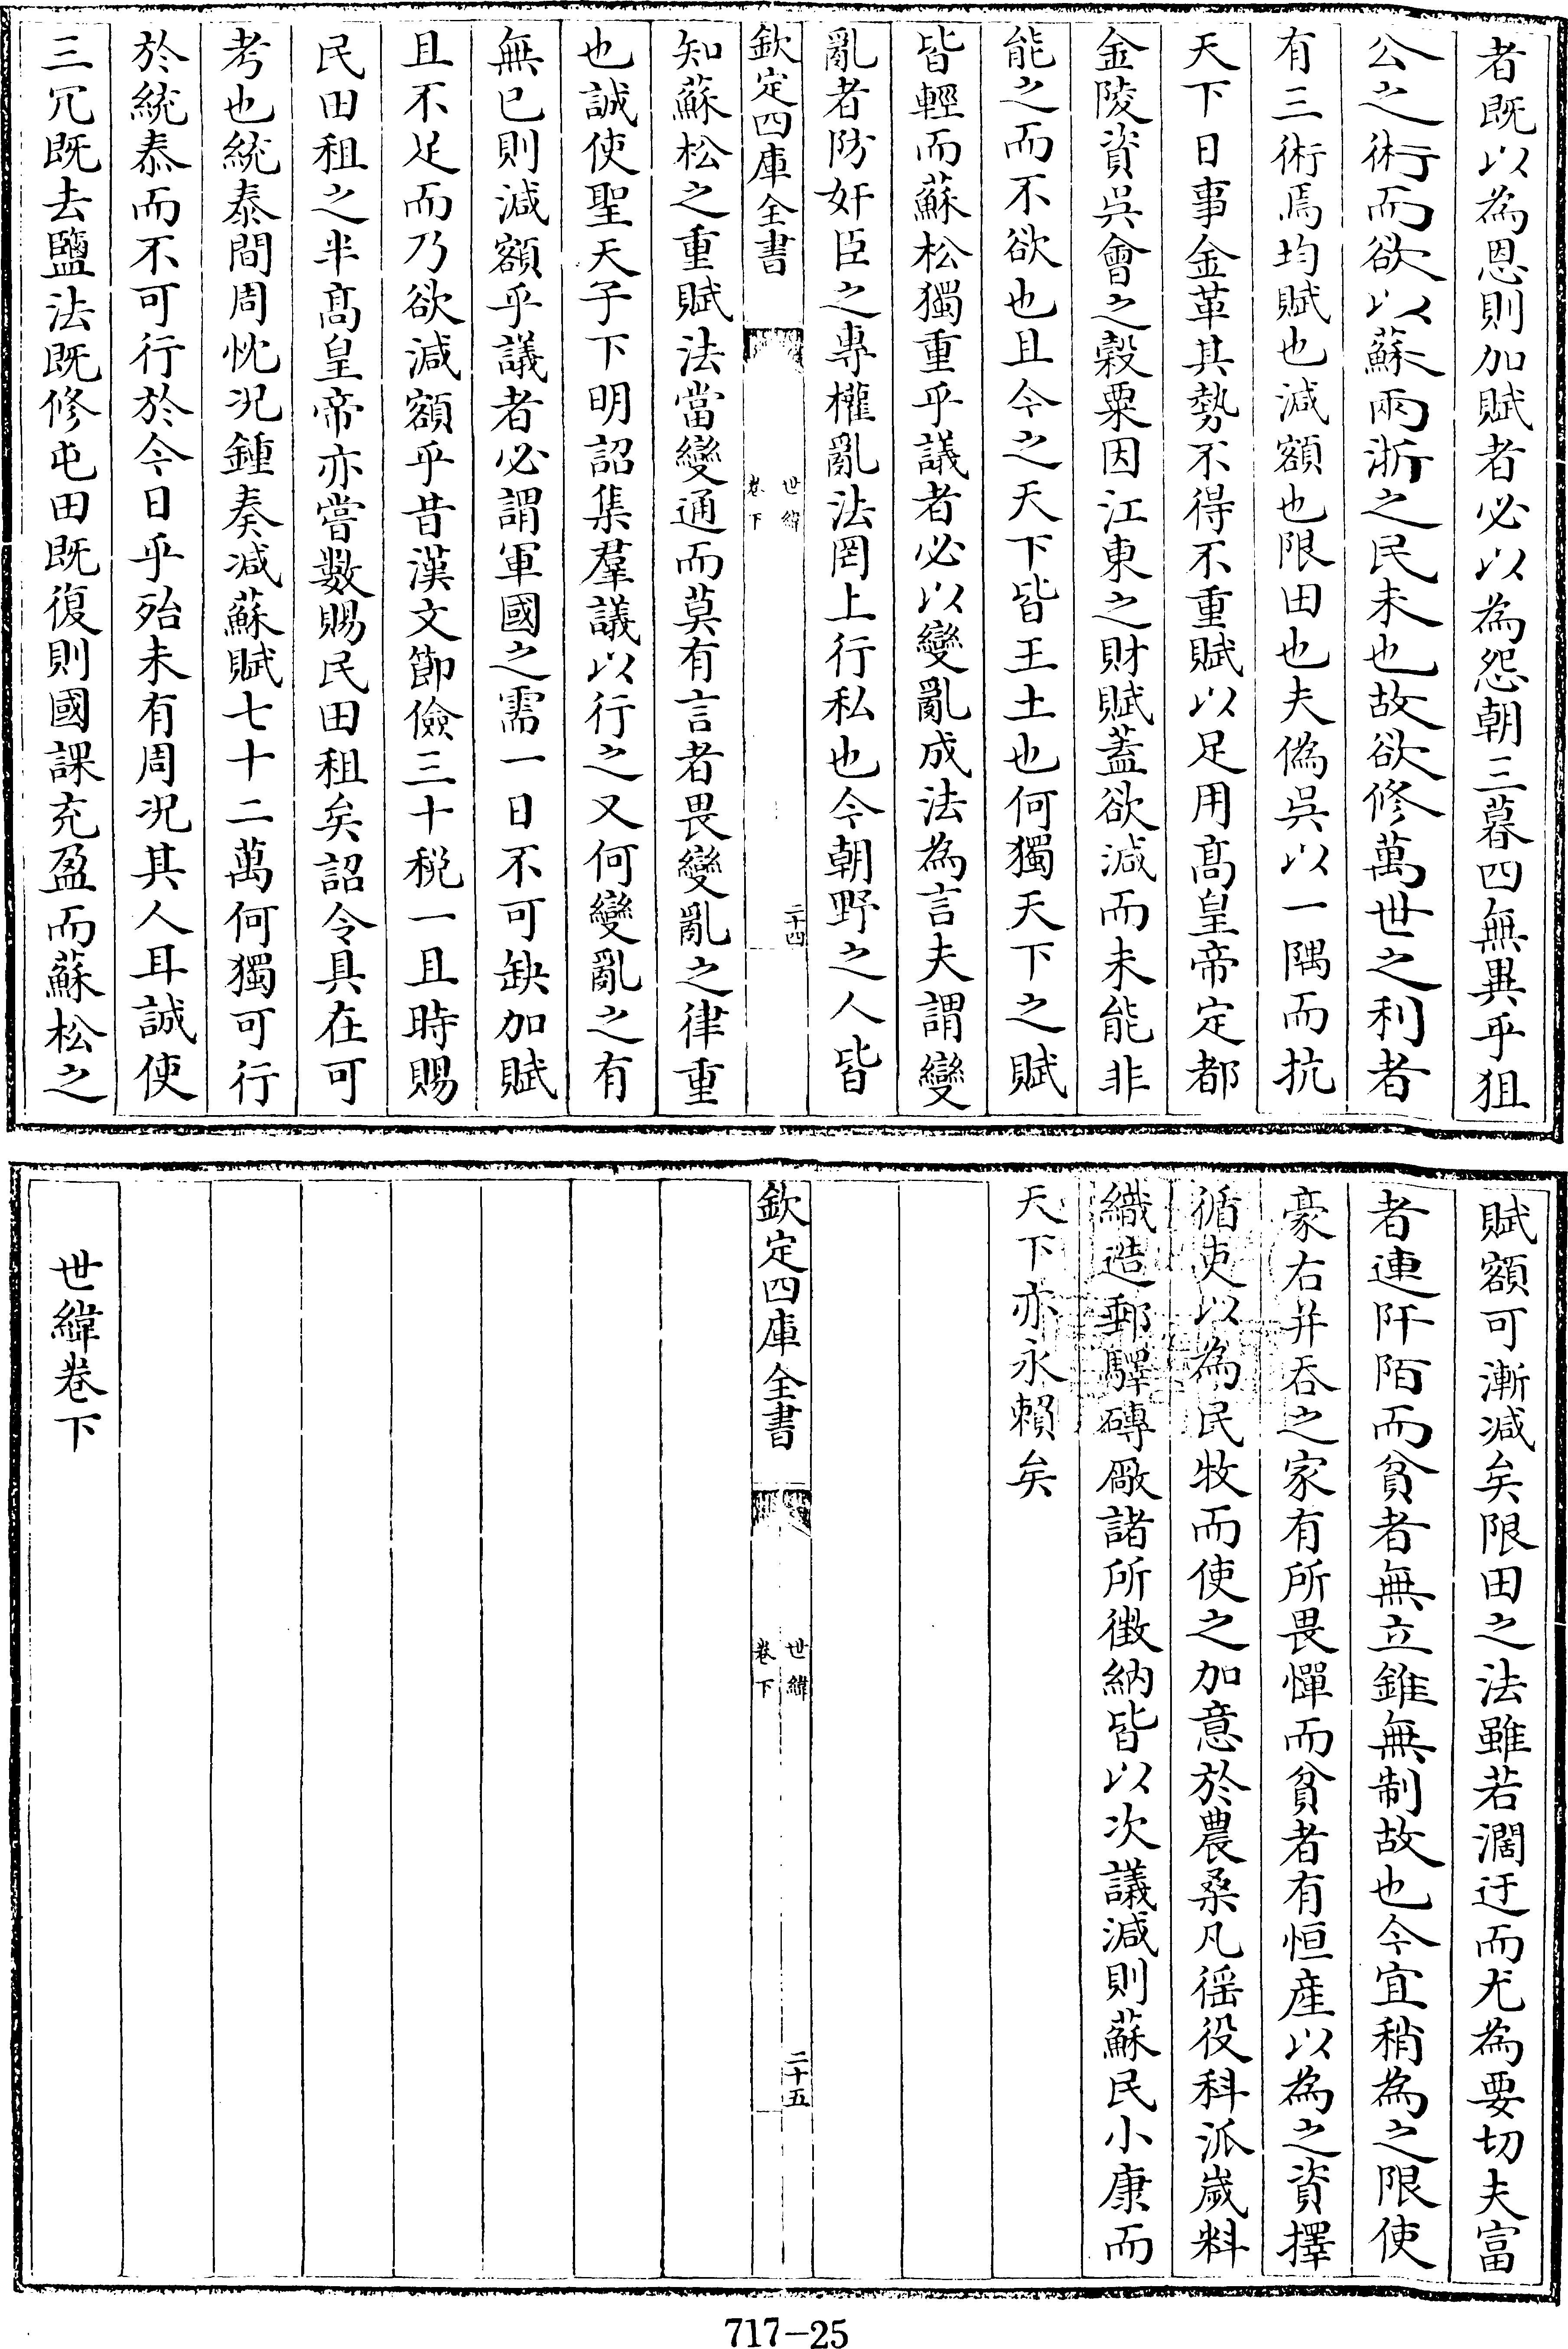 者既以為恩則加賦者必以為怨朝三暮四無異乎狙
公之術而欲以蘇兩浙之民未也故欲修萬世之利者
有三術焉均賦也減額也限田也夫偽吳以一隅而抗
天下日事金革其勢不得不重賦以足用髙皇帝定都
金陵資吳會之榖粟因江東之財賦蓋欲減而未能非
能之而不欲也且今之天下皆王土也何獨天下之賦
皆輕而蘇松獨重乎議者必以變亂成法為言夫謂變
亂者防奸臣之專權亂法罔上行私也今朝野之人皆
欽定四庫全書
世緯
卷下
二十四
知蘇松之重賦法當變通而莫有言者畏變亂之律重
也誠使聖天子下明詔集羣議以行之又何變亂之有
無已則減額乎議者必謂軍國之需一日不可缺加賦
且不足而乃欲減額乎昔漢文節儉三十稅一且時賜
民田租之半髙皇帝亦嘗數賜民田租矣詔令具在可
考也統泰間周忱况鍾奏减蘇賦七十二萬何獨可行
於統泰而不可行於今日乎殆未有周况其人耳誠使
三冗既去鹽法既修屯田既復則國課充盈而蘇松之
賦額可漸減矣限田之法雖若濶迂而尤為要切夫富
者連阡陌而貧者無立錐無制故也今宜稍為之限使
豪右并吞之家有所畏憚而貧者有恒産以為之資擇
循吏以為民牧而使之加意於農桑凡徭役科派嵗料
織造郵驛磚廠諸所徴納皆以次議減則蘇民小康而
天下亦永賴矣
欽定四庫全書
世緯
卷下
二十五
世緯卷下
717-25